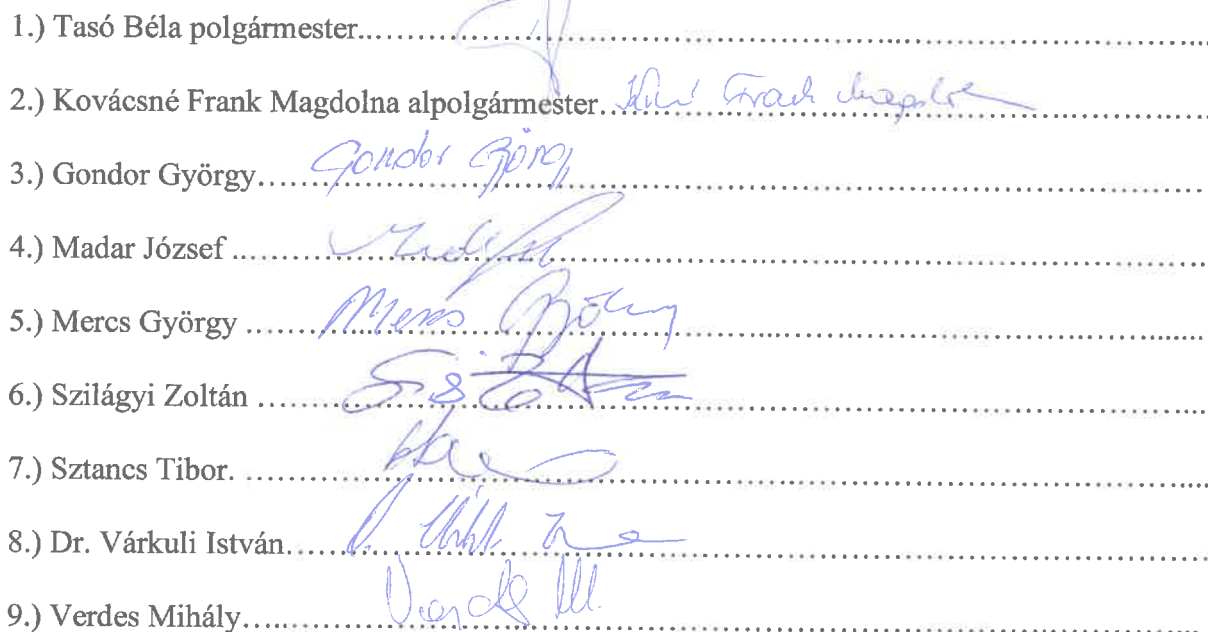 1.) Tasó Béla polgármester
2.) Kovácsné Frank Magdolna alpolgármester.
3.) Gondor György Gondor György
4.) Madar József
5.) Mercs György Mercs György
6.) Szilágyi Zoltán
7.) Sztancs Tibor.
8.) Dr. Várkuli István
9.) Verdes Mihály